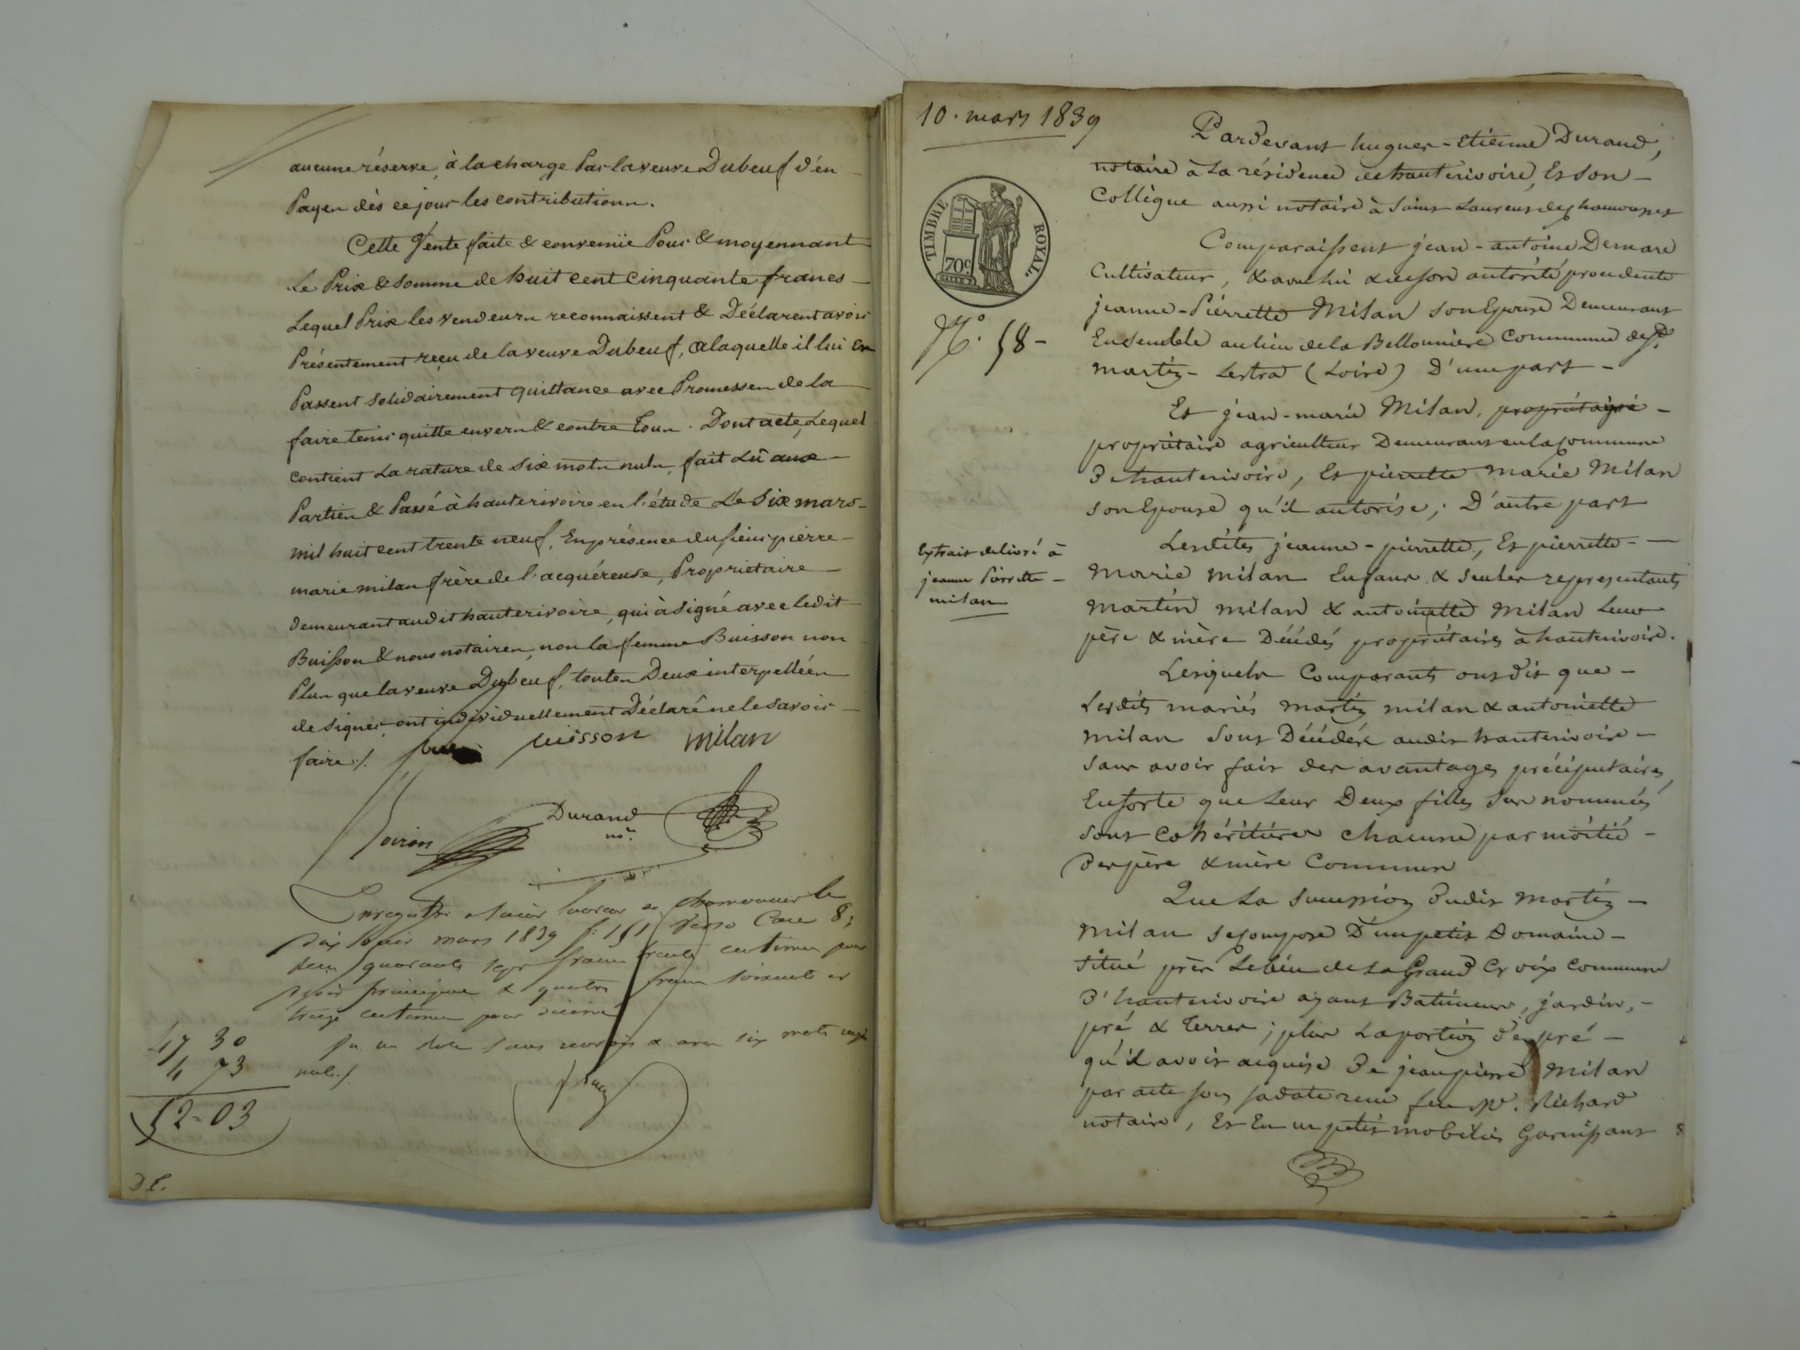 aucune réserve, à la charge Par la veuve Dubeuf d'en
Payer dès ce jour les contributions.
Cette Vente faite & convenüe Pour & moyennant
le Prix & Somme de huit cent cinquante francs
Lequel Prix les vendeurs reconnaissent & Déclarent avoir
Présentement reçu de la veuve Dubeuf, a laquelle il lui en
Passent solidairement quittance avec Promesses de la
faire tenir quitte envers & contre tous. Dont acte, Lequel
contient la rature de six mots nuls, fait Lû aux
Parties & Passé à hauterivoire en l'étude Le Six mars
mil huit cent trente neuf, En présence du sieur pierre
marie milan frère de l'acquéreuse, Propriétaire
demeurant audit hauterivoire, qui à signé avec ledit
Buisson & nous notaires, non la femme Buisson non
Plus que la veuve Dubeuf, toutes Deux interpellées
de signer, ont individuellement Déclaré ne le savoir
faire /. buisson milan
Durand
nre
Voiron
Enregistré à Saint Laurent de Chamousset le
dix huit mars 1839 f. 151 verso Case 8;
reçu quarante sept francs trente centimes pour
droit principal & quatre francs soixante et
treize centimes pour dixième
nuls /.
47 30
4 73
52-03
D.C.
10. mars 1839
TIMBRE ROYAL.
70c
N.º 58-
Extrait delivré à
jeanne Pierrette -
milan
Pardevant hugues-Etienne Durand,
notaire à La résidence de hauterivoire, Et Son -
Collègue aussi notaire à Saint Laurent de chamousset
Comparaissent jean-antoine Demare
Cultivateur, & avec lui & de son autorité procedente
jeanne-Pierrette Milan son Epouse Demeurant
Ensemble au lieu de la Bellonniere Commune de St.
martin-Lestra (Loire) D'une part -
Et jean-marie Milan, propriétaire -
propriétaire agriculteur Demeurant en la Commune
D'hauterivoire, Et pierrette marie Milan
son Epouse qu'il autorise; D'autre part
Lesdites jeanne-pierrette, Et pierrette -
Marie milan Enfans & seules representants
Martin milan & antoinette Milan Leur
père & mère Décédés propriétaires à hauterivoire.
Lesquels Comparants ont dit que -
Lesdits mariés martin milan & antoinette
milan sont Décédés audit hauterivoire -
sans avoir fait des avantages préciputaires,
Ensorte que Leur Deux filles sus nommées
sont cohéritières chacune par moitié -
des père & mère Communs
Que La succession dudit Martin -
Milan se compose D'un petit Domaine -
Situé près Le lieu de La Grand Croix Commune
D'hauterivoire ayant Batimens, jardin, -
pré & Terres; plus La portion de pré -
qu'il avoit acquise De jean pierre Milan
par acte sous sa date reçu feu Me. Richard
notaire, Et En un petit mobilier Garnissant